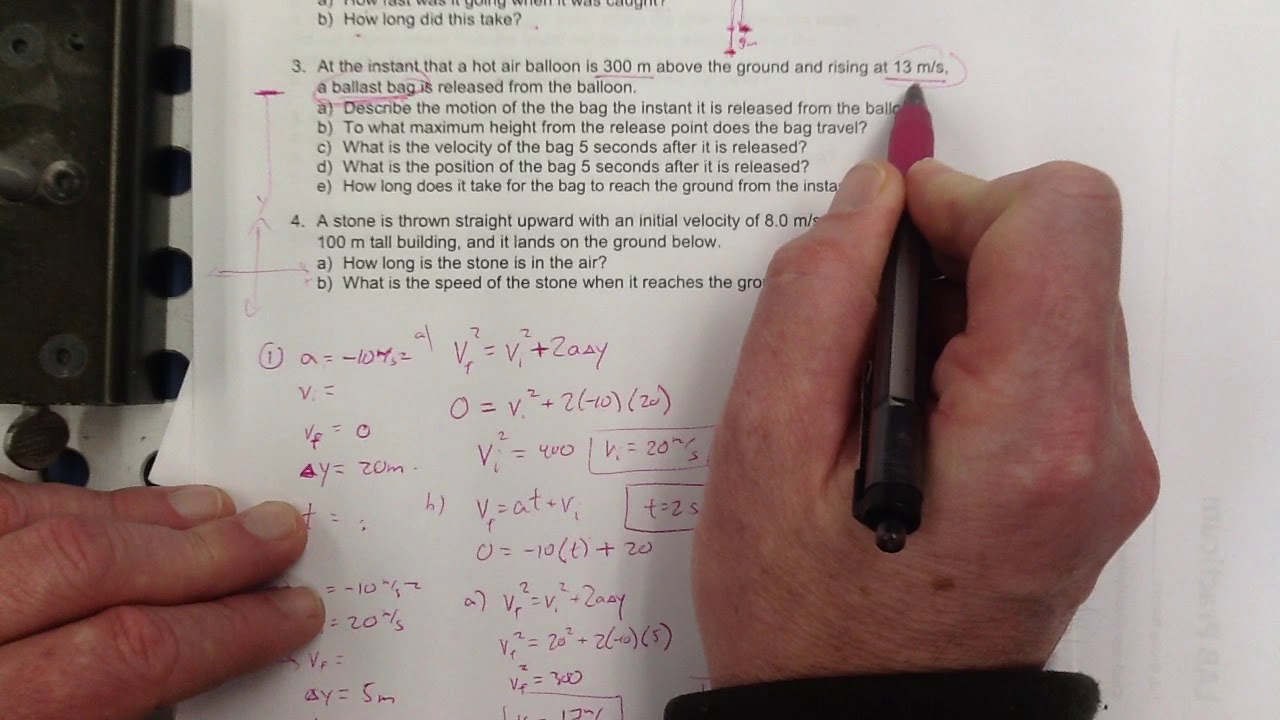 a) How fast was it going when it was caught?
b) How long did this take?
8m
3. At the instant that a hot air balloon is 300 m above the ground and rising at 13 m/s,
a ballast bag is released from the balloon.
a) Describe the motion of the the bag the instant it is released from the
b) To what maximum height from the release point does the bag travel?
c) What is the velocity of the bag 5 seconds after it is released?
d) What is the position of the bag 5 seconds after it is released?
e) How long does it take for the bag to reach the ground from the
4. A stone is thrown straight upward with an initial velocity of 8.0 m/s
100 m tall building, and it lands on the ground below.
a) How long is the stone is in the air?
b) What is the speed of the stone when it reaches the
① a = -10 m/s² a) Vf² = Vi² + 2aΔy
Vi =
0 = Vi² + 2(-10)(20)
Vf = 0
Vi² = 400 Vi = 20 m/s
Δy = 20m
t = b) Vf = at + Vi t = 2s
0 = -10(t) + 20
= -10 m/s² a) Vf² = Vi² + 2aΔy
= 20 m/s
Vf² = 20² + 2(-10)(5)
Vf =
Vf² = 300
Δy = 5m
LAB Practicum